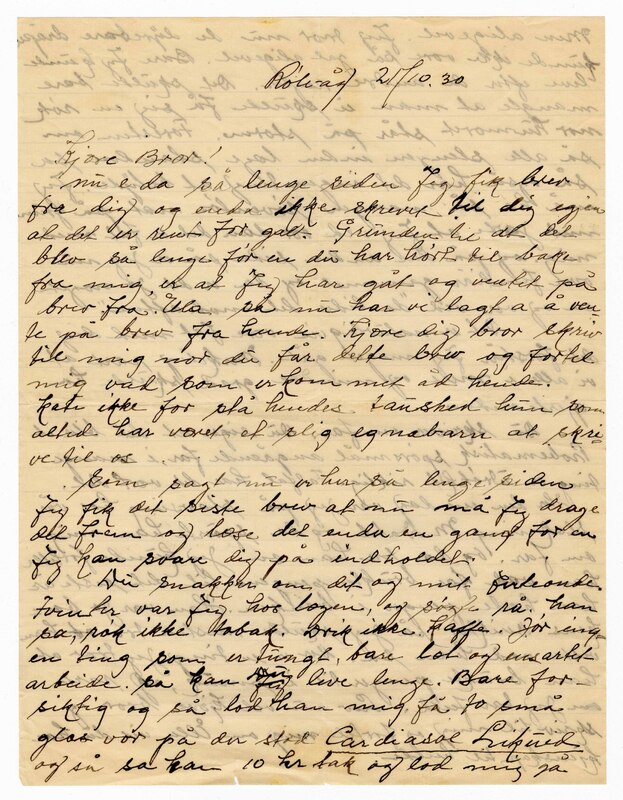 Rölvåg 21/10.30
Kjære Bror!
nu e da så lenge siden Jeg fik brev
fra dig og enda ikke skrevet til dig egjen
at det er rent for galt. Grunden til at det
blev så lenge før en du har hört til bake
fra mig, er at Jeg har gåt og ventet på
brev fra. Ula så nu har vi lagt a å ven-
te på brev fra hende. Kjære dig bror skriv
til mig nor du får dette brev og fortel
mig vad som er kommet åd hende.
kan ikke for stå hendes taushed hun som
altid har været et slig egnabarn at skri-
ve til os.
Som sagt nu er her så lenge siden
Jeg fik det siste brev at nu må Jeg drage
det frem og læse det enda en gang for en
Jeg kan svare dig på indholdet.
Du snakker om dit og mit
var Jeg hos lægen, og søgte rå, han
sa, røk ikke tobak. Drik ikke kaffe. Jør ing-
en ting som er tungt, bare let og ensartet
arbeide. så kan Du leve lenge. Bare for-
siktig og så lod han mig få to små
glas vor på der stod Cardiasol Likvid
og så sa han 10 kr tak og lod mig gå